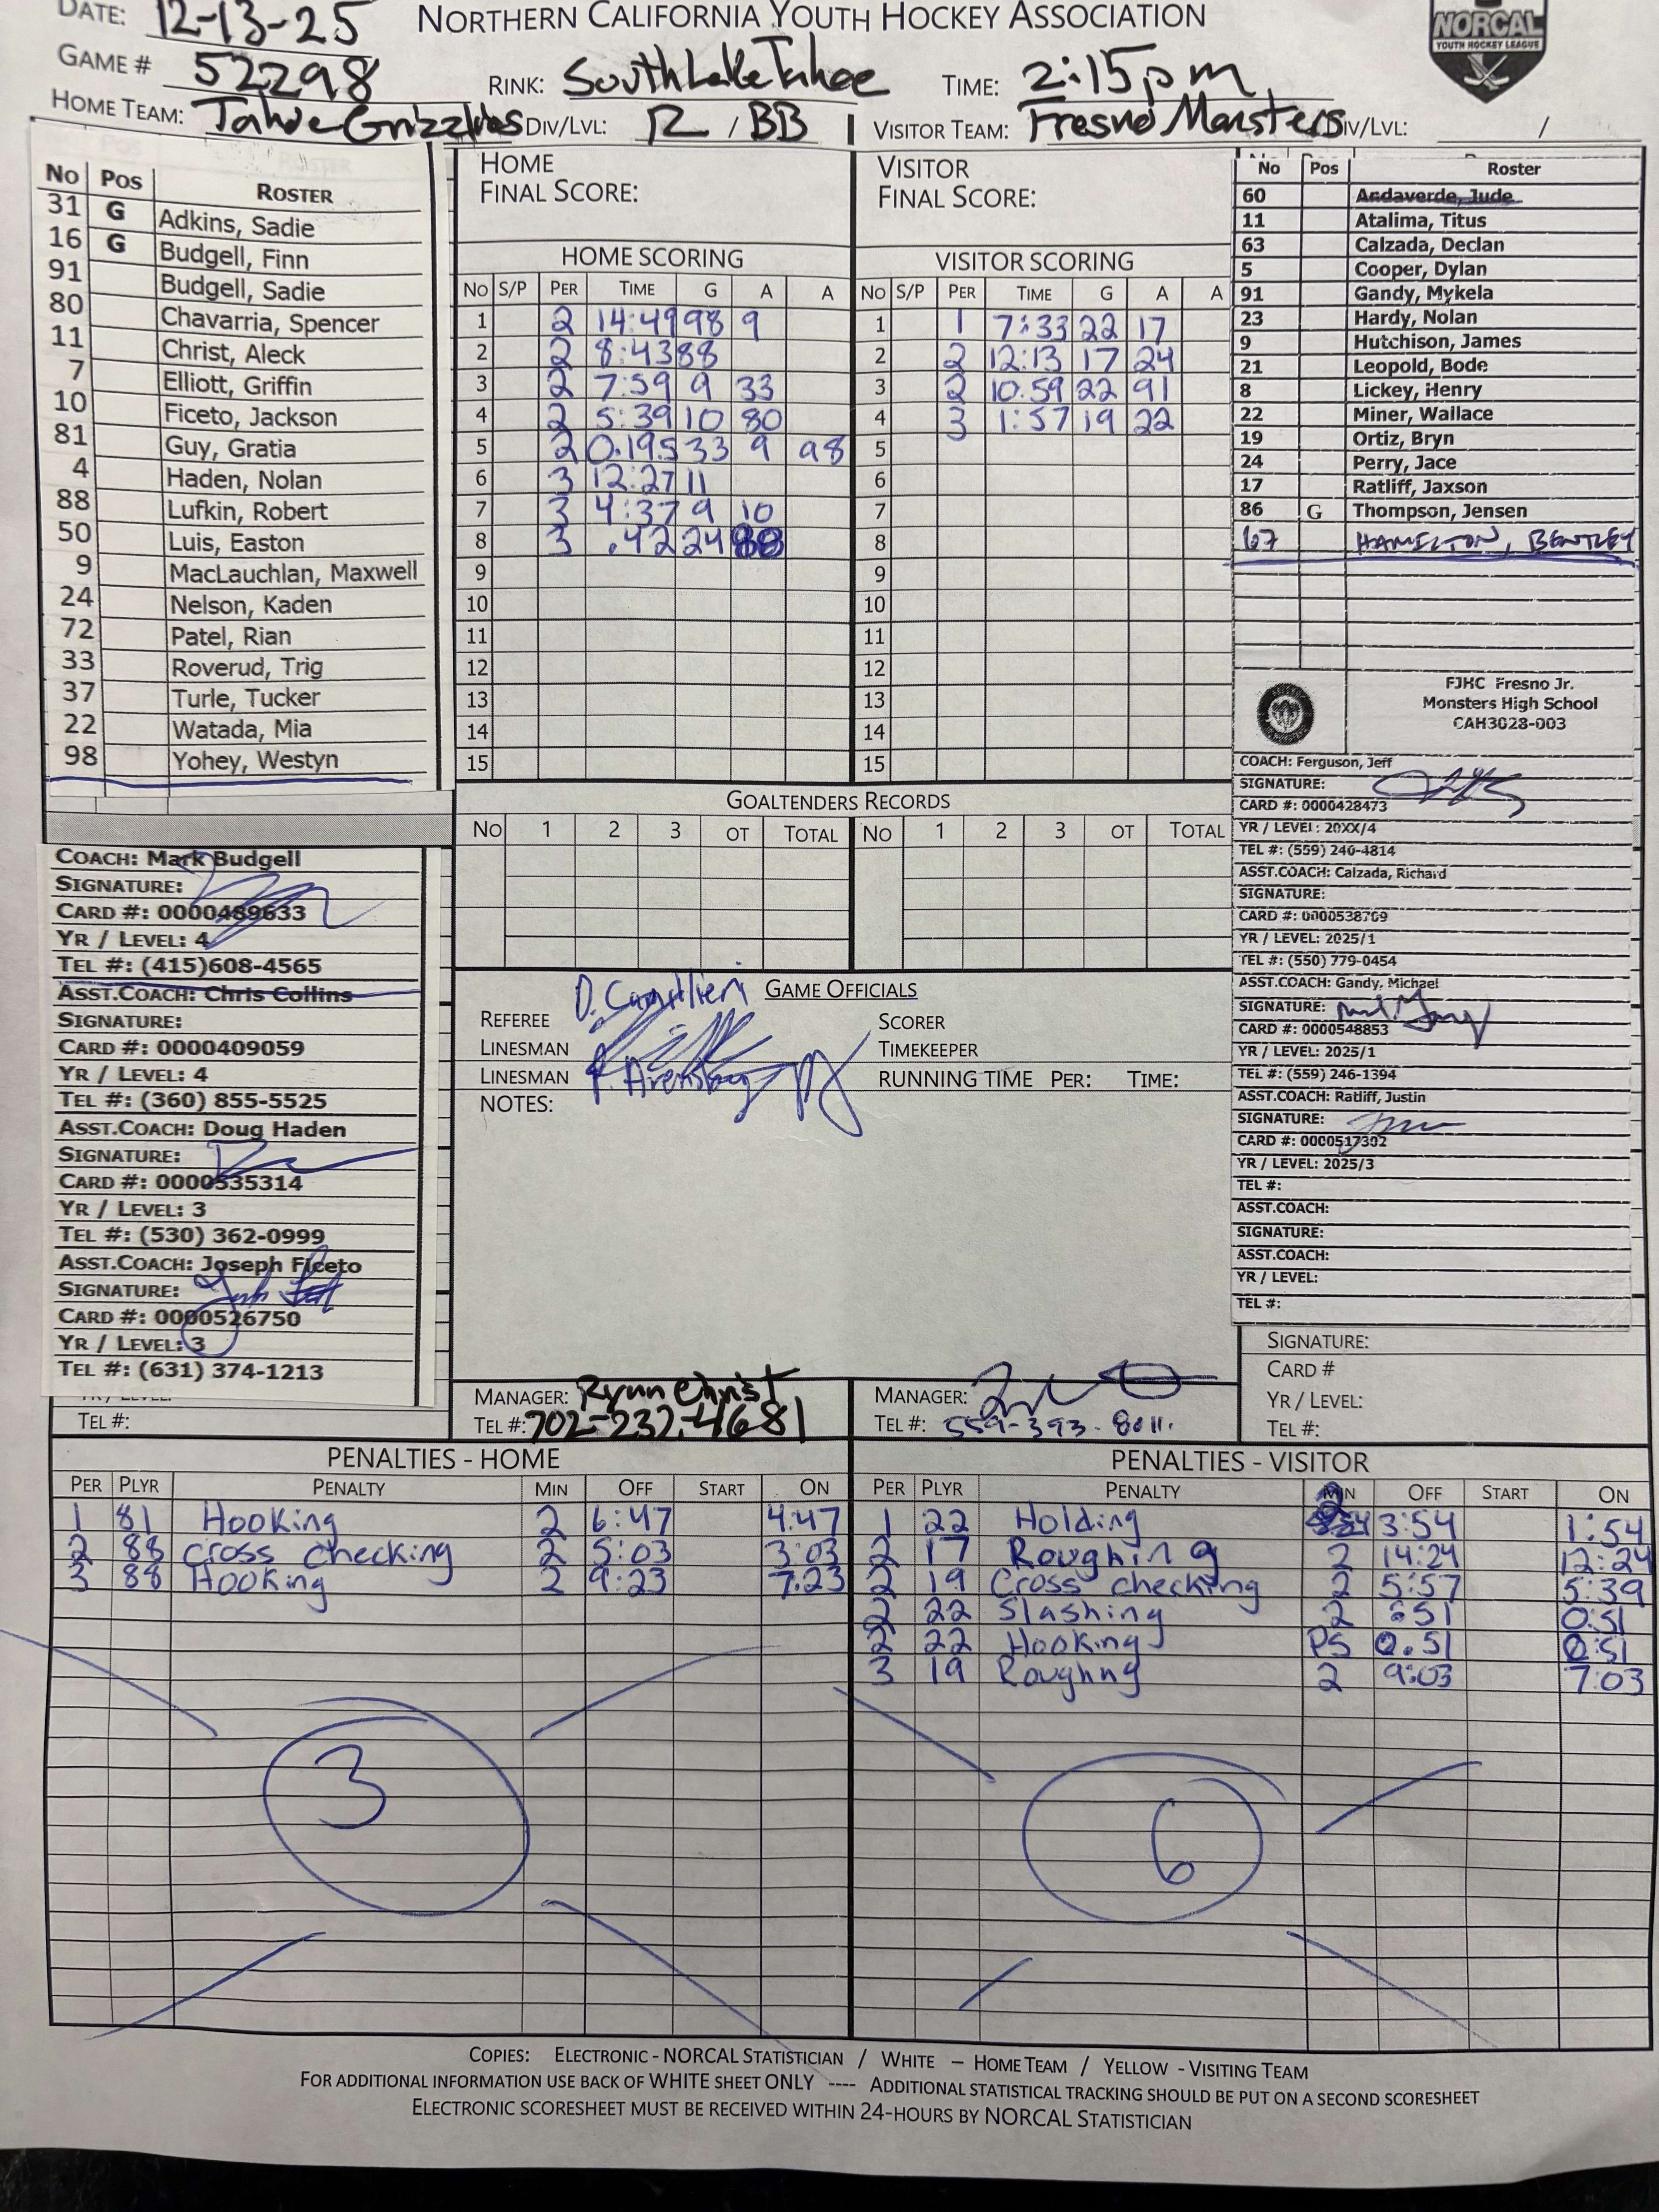 DATE: 12-13-25
NORTHERN CALIFORNIA YOUTH HOCKEY ASSOCIATION
NORCAL
YOUTH HOCKEY LEAGUE
GAME # 52298
RINK: South Lake Tahoe
TIME: 2:15pm
HOME TEAM: Tahoe Grizzlies
DIV/LVL: R / BB
VISITOR TEAM: Fresno Monsters
DIV/LVL: /
No Pos ROSTER
31 G Adkins, Sadie
16 G Budgell, Finn
91 Budgell, Sadie
80 Chavarria, Spencer
11 Christ, Aleck
7 Elliott, Griffin
10 Ficeto, Jackson
81 Guy, Gratia
4 Haden, Nolan
88 Lufkin, Robert
50 Luis, Easton
9 MacLauchlan, Maxwell
24 Nelson, Kaden
72 Patel, Rian
33 Roverud, Trig
37 Turle, Tucker
22 Watada, Mia
98 Yohey, Westyn
COACH: Mark Budgell
SIGNATURE:
CARD #: 0000489633
YR / LEVEL: 4
TEL #: (415)608-4565
ASST.COACH: Chris Collins
SIGNATURE:
CARD #: 0000409059
YR / LEVEL: 4
TEL #: (360) 855-5525
ASST.COACH: Doug Haden
SIGNATURE:
CARD #: 0000535314
YR / LEVEL: 3
TEL #: (530) 362-0999
ASST.COACH: Joseph Ficeto
SIGNATURE:
CARD #: 0000526750
YR / LEVEL: 3
TEL #: (631) 374-1213
TEL #:
HOME
FINAL SCORE:
HOME SCORING
NO S/P PER TIME G A A
1 2 14:49 98 9
2 2 8:43 88
3 2 7:59 9 33
4 2 5:39 10 80
5 2 0.19.5 33 9 98
6 3 12:27 11
7 3 4:37 9 10
8 3 .42 24 88
9
10
11
12
13
14
15
VISITOR
FINAL SCORE:
VISITOR SCORING
NO S/P PER TIME G A A
1 1 7:33 22 17
2 2 12:13 17 24
3 2 10.59 22 91
4 3 1:57 19 22
5
6
7
8
9
10
11
12
13
14
15
GOALTENDERS RECORDS
NO 1 2 3 OT TOTAL NO 1 2 3 OT TOTAL
GAME OFFICIALS
REFEREE
LINESMAN
LINESMAN
SCORER
TIMEKEEPER
RUNNING TIME PER: TIME:
NOTES:
MANAGER: Rynn Christ
TEL #: 702-232-4681
MANAGER:
TEL #: 559-393-8011.
No Pos Roster
60 Andaverde, Jude
11 Atalima, Titus
63 Calzada, Declan
5 Cooper, Dylan
91 Gandy, Mykela
23 Hardy, Nolan
9 Hutchison, James
21 Leopold, Bode
8 Lickey, Henry
22 Miner, Wallace
19 Ortiz, Bryn
24 Perry, Jace
17 Ratliff, Jaxson
86 G Thompson, Jensen
67 HAMILTON, BENTLEY
FJHC Fresno Jr.
Monsters High School
CAH3028-003
COACH: Ferguson, Jeff
SIGNATURE:
CARD #: 0000428473
YR / LEVEL: 20XX/4
TEL #: (559) 240-4814
ASST.COACH: Calzada, Richard
SIGNATURE:
CARD #: 0000538769
YR / LEVEL: 2025/1
TEL #: (550) 779-0454
ASST.COACH: Gandy, Michael
SIGNATURE:
CARD #: 0000548853
YR / LEVEL: 2025/1
TEL #: (559) 246-1394
ASST.COACH: Ratliff, Justin
SIGNATURE:
CARD #: 0000517302
YR / LEVEL: 2025/3
TEL #:
ASST.COACH:
SIGNATURE:
ASST.COACH:
YR / LEVEL:
TEL #:
SIGNATURE:
CARD #
YR / LEVEL:
TEL #:
PENALTIES - HOME
PER PLYR PENALTY MIN OFF START ON
1 81 Hooking 2 6:47 4:47
2 88 Cross checking 2 5:03 3:03
3 88 Hooking 2 9:23 7:23
3
PENALTIES - VISITOR
PER PLYR PENALTY MIN OFF START ON
1 22 Holding 2 3:54 1:54
2 17 Roughing 2 14:24 12:24
2 19 Cross checking 2 5:57 5:39
2 22 Slashing 2 :51 0:51
2 22 Hooking PS 0.51 0:51
3 19 Roughng 2 9:03 7:03
6
COPIES: ELECTRONIC - NORCAL STATISTICIAN / WHITE – HOME TEAM / YELLOW - VISITING TEAM
FOR ADDITIONAL INFORMATION USE BACK OF WHITE SHEET ONLY ---- ADDITIONAL STATISTICAL TRACKING SHOULD BE PUT ON A SECOND SCORESHEET
ELECTRONIC SCORESHEET MUST BE RECEIVED WITHIN 24-HOURS BY NORCAL STATISTICIAN